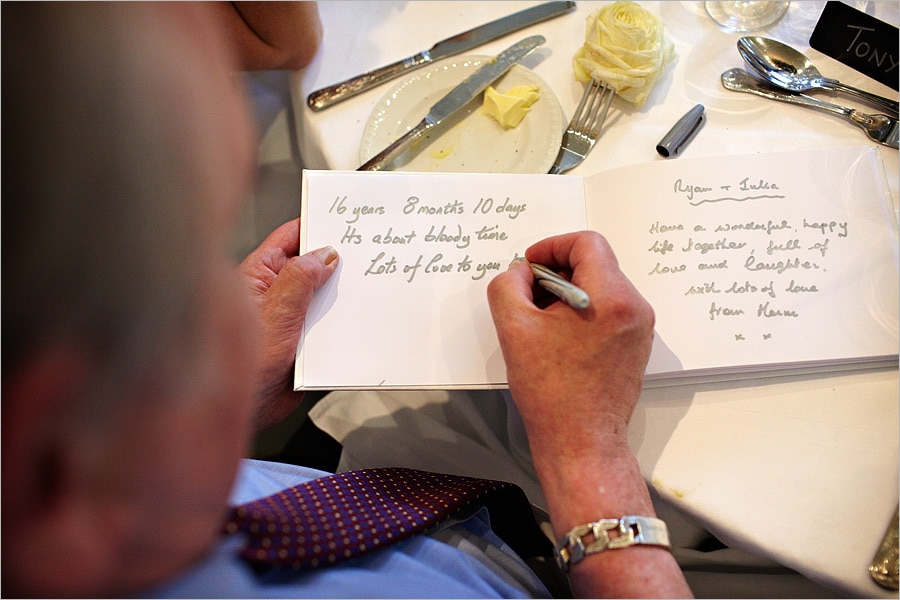 16 years 8 months 10 days
Its about bloody time
Lots of love to you
Ryan + Julia
Have a wonderful, happy
life together, full of
love and laughter.
with lots of love
from
x x
TONY